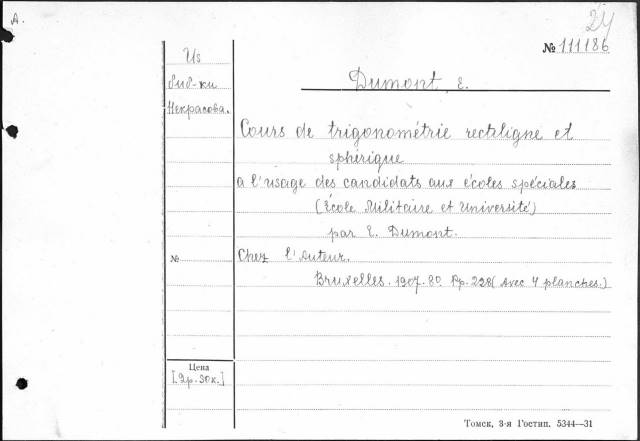 A.
24
№ 111186
Из
биб-ки
Некрасова.
Dumont, E.
Cours de trigonométrie rectiligne et
sphérique
a l'usage des candidats aux écoles spéciales
(École Militaire et Université)
par E. Dumont.
№
Chez l'Auteur.
Bruxelles. 1907. 8º. Pp. 228 (Avec 4 planches.)
Цена
[.2р.30к.]
Томск, 3-я Гостип. 5344—31